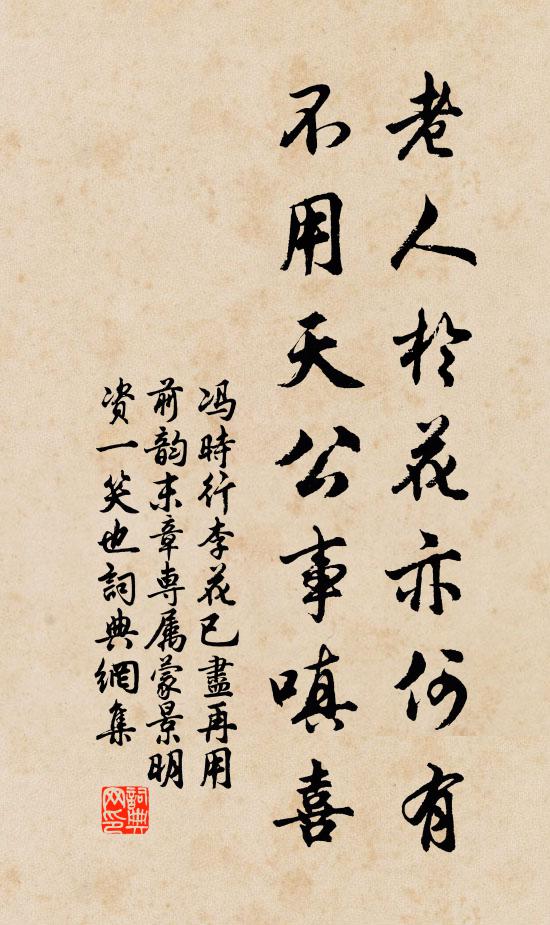 老人於花亦何有
不用天公事嗔喜
冯時行李花已盡再用
前韵末章専属蒙景明
资一笑也詞典網集
詞典网印